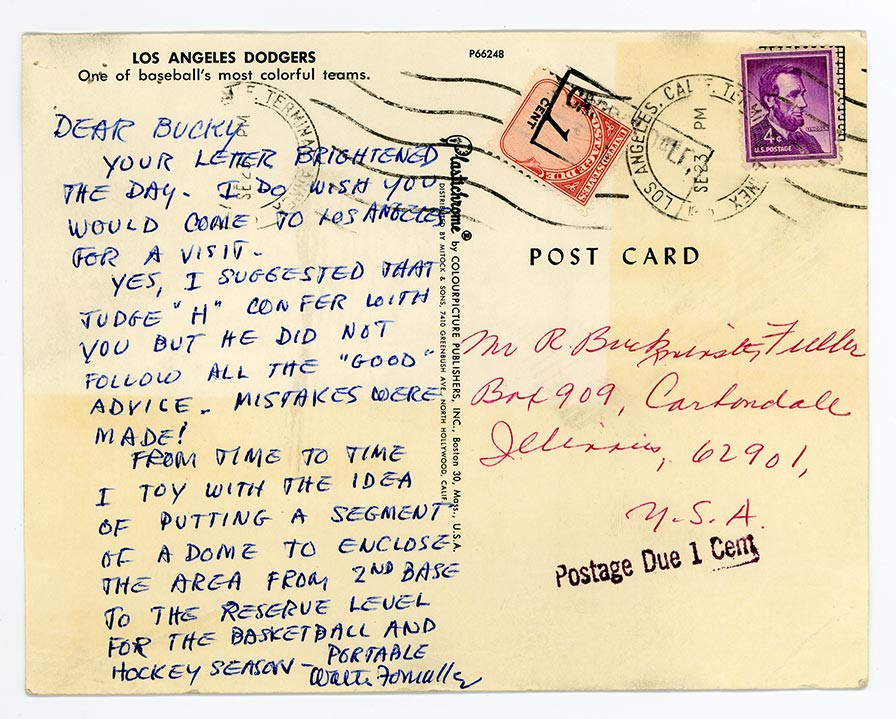 LOS ANGELES DODGERS
One of baseball's most colorful teams.
P66248
DEAR BUCKY
YOUR LETTER BRIGHTENED
THE DAY. I DO WISH YOU
WOULD COME TO LOS ANGELES
FOR A VISIT.
YES, I SUGGESTED THAT
JUDGE "H" CONFER WITH
YOU BUT HE DID NOT
FOLLOW ALL THE "GOOD"
ADVICE. MISTAKES WERE
MADE!
FROM TIME TO TIME
I TOY WITH THE IDEA
OF PUTTING A SEGMENT
OF A DOME TO ENCLOSE
THE AREA FROM 2ND BASE
TO THE RESERVE LEVEL
FOR THE BASKETBALL AND
HOCKEY SEASON - PORTABLE
Walter
Plastichrome ® by COLOURPICTURE PUBLISHERS, INC., Boston 30, Mass., U.S.A.
DISTRIBUTED BY MITOCK & SONS, 7410 GREENBUSH AVE., NORTH HOLLYWOOD, CALIF.
1
CENT
POSTAGE DUE
UNITED STATES
LOS ANGELES, CALIF.
SE 23
PM
4¢
LINCOLN
U.S. POSTAGE
TERMINAL ANNEX
PM
POST CARD
Mr R. Buckminster Fuller
Box 909, Carbondale
Illinois, 62901,
U.S.A.
Postage Due 1 Cent